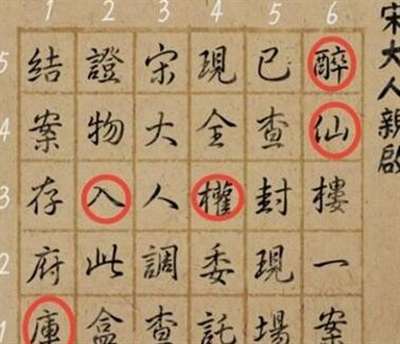 宋大人親啟
1 2 3 4 5 6
醉仙樓一案
已查封現場
現全權委託
宋大人調查
證物入此盒
結案存府庫
5
4
3
2
1